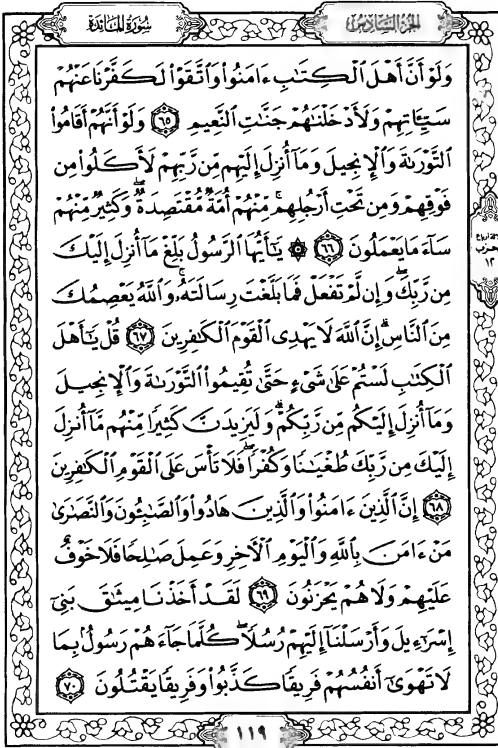 سُورَةُ المَائِدَة
الجُزْءُ السَّادِسُ
وَلَوْ أَنَّ أَهْلَ الْكِتَٰبِ ءَامَنُوا۟ وَاتَّقَوْا۟ لَكَفَّرْنَا عَنْهُمْ
سَيِّـَٔاتِهِمْ وَلَأَدْخَلْنَٰهُمْ جَنَّٰتِ النَّعِيمِ ٦٥ وَلَوْ أَنَّهُمْ أَقَامُوا۟
التَّوْرَىٰةَ وَالْإِنجِيلَ وَمَآ أُنزِلَ إِلَيْهِم مِّن رَّبِّهِمْ لَأَكَلُوا۟ مِن
فَوْقِهِمْ وَمِن تَحْتِ أَرْجُلِهِم ۚ مِّنْهُمْ أُمَّةٌ مُّقْتَصِدَةٌ ۖ وَكَثِيرٌ مِّنْهُمْ
سَآءَ مَا يَعْمَلُونَ ٦٦ ۞ يَٰٓأَيُّهَا الرَّسُولُ بَلِّغْ مَآ أُنزِلَ إِلَيْكَ
مِن رَّبِّكَ ۖ وَإِن لَّمْ تَفْعَلْ فَمَا بَلَّغْتَ رِسَالَتَهُۥ ۚ وَاللَّهُ يَعْصِمُكَ
مِنَ النَّاسِ ۗ إِنَّ اللَّهَ لَا يَهْدِى الْقَوْمَ الْكَٰفِرِينَ ٦٧ قُلْ يَٰٓأَهْلَ
الْكِتَٰبِ لَسْتُمْ عَلَىٰ شَىْءٍ حَتَّىٰ تُقِيمُوا۟ التَّوْرَىٰةَ وَالْإِنجِيلَ
وَمَآ أُنزِلَ إِلَيْكُم مِّن رَّبِّكُمْ ۗ وَلَيَزِيدَنَّ كَثِيرًا مِّنْهُم مَّآ أُنزِلَ
إِلَيْكَ مِن رَّبِّكَ طُغْيَٰنًا وَكُفْرًا ۖ فَلَا تَأْسَ عَلَى الْقَوْمِ الْكَٰفِرِينَ
٦٨ إِنَّ الَّذِينَ ءَامَنُوا۟ وَالَّذِينَ هَادُوا۟ وَالصَّٰبِـُٔونَ وَالنَّصَٰرَىٰ
مَنْ ءَامَنَ بِاللَّهِ وَالْيَوْمِ الْءَاخِرِ وَعَمِلَ صَٰلِحًا فَلَا خَوْفٌ
عَلَيْهِمْ وَلَا هُمْ يَحْزَنُونَ ٦٩ لَقَدْ أَخَذْنَا مِيثَٰقَ بَنِىٓ
إِسْرَٰٓءِيلَ وَأَرْسَلْنَآ إِلَيْهِمْ رُسُلًا ۖ كُلَّمَا جَآءَهُمْ رَسُولٌۢ بِمَا
لَا تَهْوَىٰٓ أَنفُسُهُمْ فَرِيقًا كَذَّبُوا۟ وَفَرِيقًا يَقْتُلُونَ ٧٠
١١٩